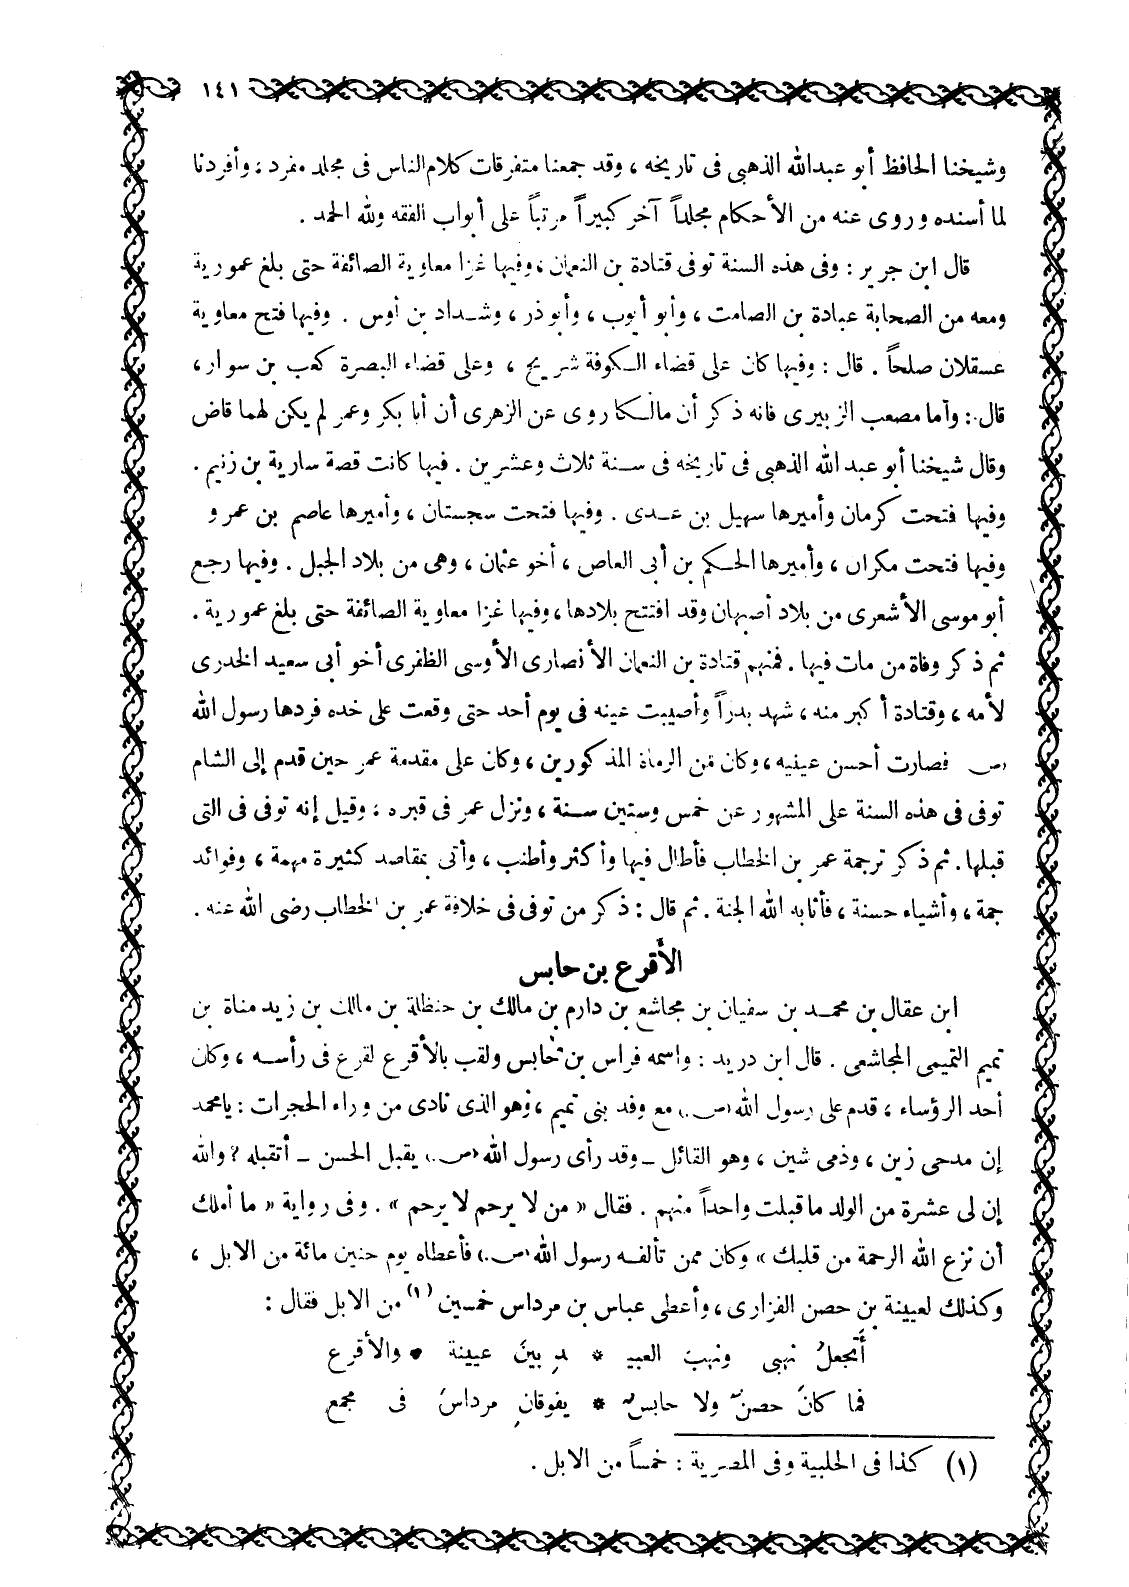 ١٤١
وشيخنا الحافظ أبو عبدالله الذهبى فى تاريخه ، وقد جمعنا متفرقات كلام الناس فى مجلد مفرد ، وأفردنا
لما أسنده وروى عنه من الأحكام مجلداً آخر كبيراً مرتباً على أبواب الفقه ولله الحمد .
قال ابن جرير : وفى هذه السنة توفى قتادة بن النعمان ، وفيها غزا معاوية الصائفة حتى بلغ عمورية
ومعه من الصحابة عبادة بن الصامت ، وأبو أيوب ، وأبو ذر ، وشداد بن أوس . وفيها فتح معاوية
عسقلان صلحاً . قال : وفيها كان على قضاء الكوفة شريح ، وعلى قضاء البصرة كعب بن سوار ،
قال : وأما مصعب الزبيرى فانه ذكر أن مالكا روى عن الزهرى أن أبا بكر وعمر لم يكن لهما قاض
وقال شيخنا أبو عبد الله الذهبى فى تاريخه فى سنة ثلاث وعشرين . فيها كانت قصة سارية بن زنيم .
وفيها فتحت كرمان وأميرها سهيل بن عدى . وفيها فتحت سجستان ، وأميرها عاصم بن عمر و
وفيها فتحت مكران ، وأميرها الحكم بن أبى العاص ، أخو عثمان ، وهى من بلاد الجبل . وفيها رجع
أبو موسى الأشعرى من بلاد أصبهان وقد افتتح بلادها ، وفيها غزا معاوية الصائفة حتى بلغ عمورية .
ثم ذكر وفاة من مات فيها . فمنهم قتادة بن النعمان الأنصارى الأوسى الظفرى أخو أبى سعيد الخدرى
لأمه ، وقتادة أكبر منه ، شهد بدراً وأصيبت عينه فى يوم أحد حتى وقعت على خده فردها رسول الله
(ص) فصارت أحسن عينيه ، وكان من الرماة المذكورين ، وكان على مقدمة عمر حين قدم إلى الشام
توفى فى هذه السنة على المشهور عن خمس وستين سنة ، ونزل عمر فى قبره ، وقيل إنه توفى فى التى
قبلها . ثم ذكر ترجمة عمر بن الخطاب فأطال فيها وأكثر وأطنب ، وأتى بمقاصد كثيرة مهمة ، وفوائد
جمة ، وأشياء حسنة ، فأثابه الله الجنة . ثم قال : ذكر من توفى فى خلافة عمر بن الخطاب رضى الله عنه .
الأقرع بن حابس
ابن عقال بن محمد بن سفيان بن مجاشع بن دارم بن مالك بن حنظلة بن مالك بن زيد مناة بن
تميم التميمى المجاشعى . قال ابن دريد : واسمه فراس بن حابس ولقب بالأقرع لقرع فى رأسه ، وكان
أحد الرؤساء ، قدم على رسول الله (ص) مع وفد بنى تميم ، وهو الذى نادى من وراء الحجرات : يامحمد
إن مدحى زين ، وذمى شين ، وهو القائل ــ وقد رأى رسول الله (ص) يقبل الحسن ــ أتقبله ؟ والله
إن لى عشرة من الولد ما قبلت واحداً منهم . فقال « من لا يرحم لا يرحم » . وفى رواية « ما أملك
أن نزع الله الرحمة من قلبك » وكان ممن تألفه رسول الله (ص) فأعطاه يوم حنين مائة من الابل ،
وكذلك لعيينة بن حصن الفزارى ، وأعطى عباس بن مرداس خمسين (١) من الابل فقال :
أَتجعلُ نهبى ونهبَ العبيـ * ـدِ بينَ عيينة والأقرع
فما كانَ حصنٌ ولا حابسٌ * يفوقانِ مرداسَ فى مجمع
(١) كذا فى الحلبية وفى المصرية : خمساً من الابل .